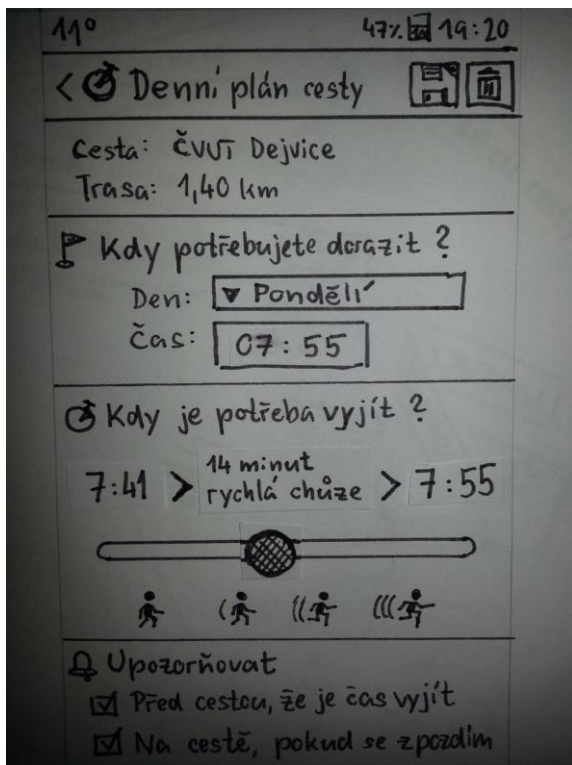 11° 47% 19:20
< Denní plán cesty
Cesta: ČVUT Dejvice
Trasa: 1,40 km
Kdy potřebujete dorazit ?
Den: ▼ Pondělí
Čas: 07:55
Kdy je potřeba vyjít ?
14 minut
7:41 > rychlá chůze > 7:55
Upozorňovat
Před cestou, že je čas vyjít
Na cestě, pokud se zpozdím